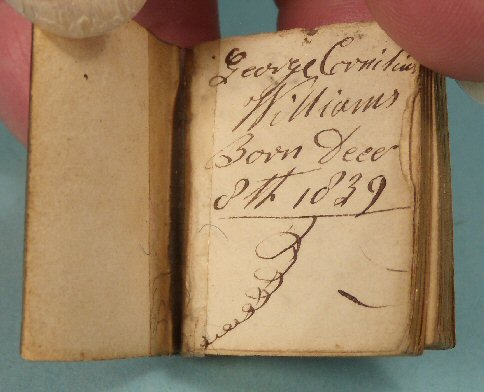 George Cornilius
Williams
Born Decer
8th 1839